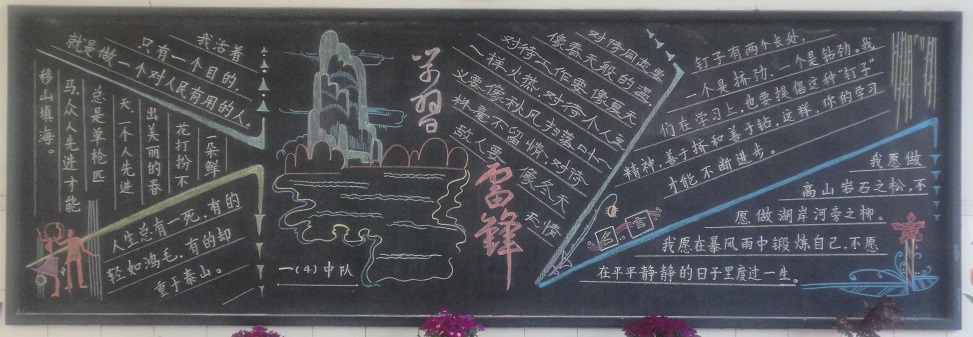 我活着
只有一个目的，
就是做一个对人民有用的人。
一朵鲜
花打扮不
出美丽的春
天，一个人先进
总是单枪匹
马，众人先进才能
移山填海。
人生总有一死，有的
轻如鸿毛，有的却
重于泰山。
学习
雷锋
一（4）中队
对待同志要
像春天般的温
对待工作要像夏天
一样火热，对待个人主
义要像秋风扫落叶一
样毫不留情，对待
敌人要像冬天
无情
名言
钉子有两个去处，
一个是挤劲，一个是钻劲。我
们在学习上，也要提倡这种“钉子”
精神，善于挤和善于钻，这样，你的学习
才能不断进步。
我愿做
高山岩石之松，不
愿做湖岸河旁之柳。
我愿在暴风雨中锻炼自己，不愿
在平平静静的日子里度过一生。